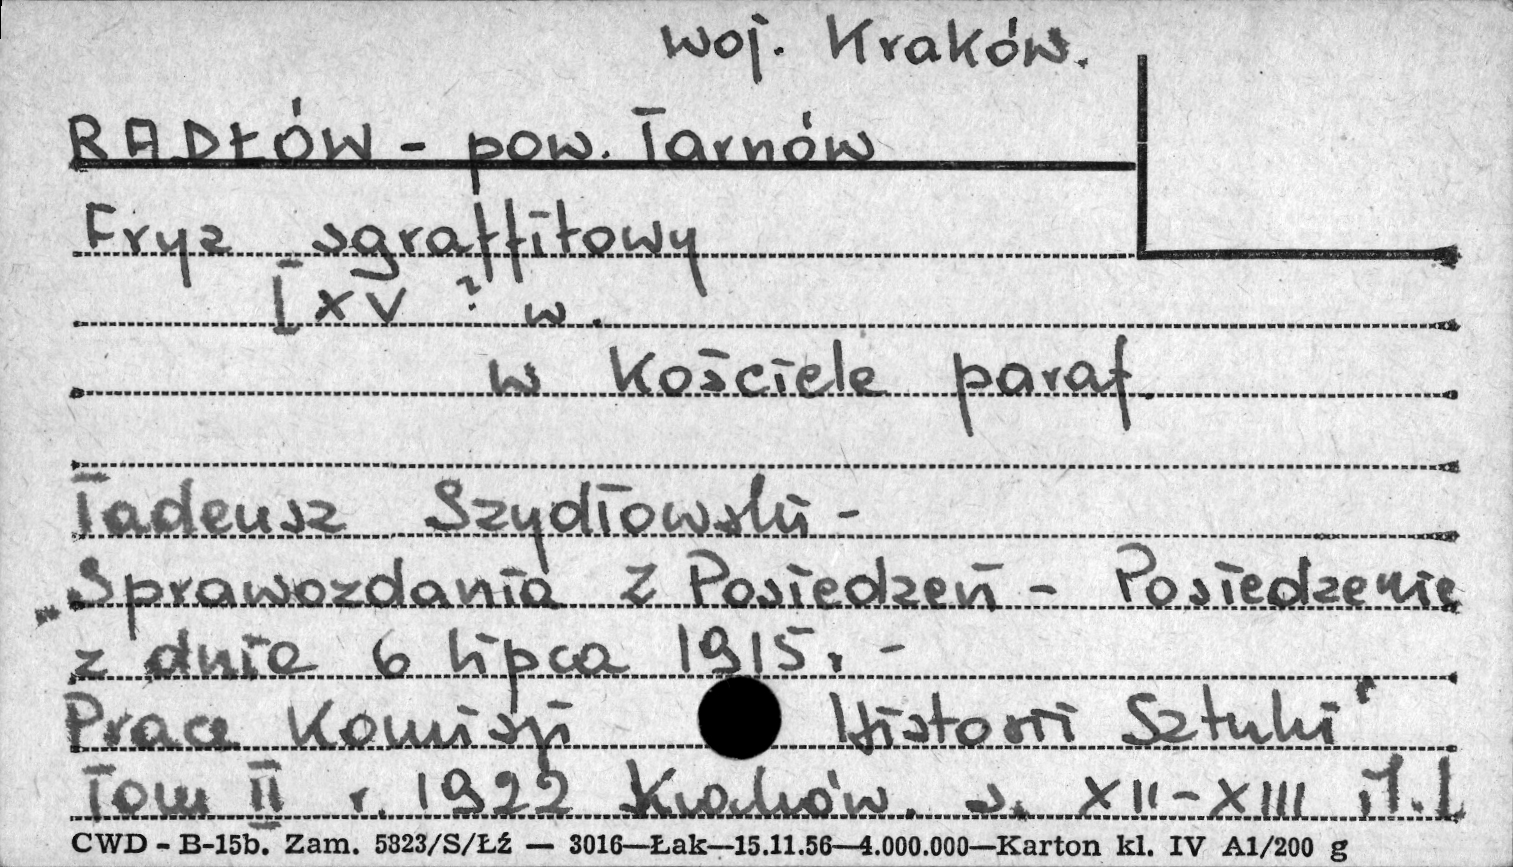 woj. Kraków.
RADŁÓW - pow. Tarnów
Fryz sgraffitowy
[XV ? w.
w Kościele paraf.
Tadeusz Szydłowski -
"Sprawozdania z Posiedzeń - Posiedzenie
z dnia 6 lipca 1915. -
Prace Komisji Historii Sztuki"
Tom II r. 1922 Kraków. s. XII-XIII il. 1
CWD - B-15b. Zam. 5823/S/Łź — 3016—Łak—15.11.56—4.000.000—Karton kl. IV A1/200 g